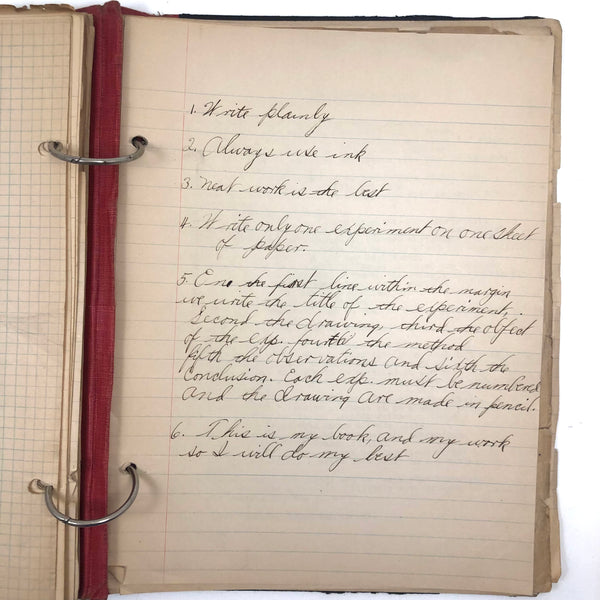 1. Write plainly
2. Always use ink
3. Neat work is the best
4. Write only one experiment on one sheet
of paper.
5. On the first line within the margin
we write the title of the experiment,
Second the drawing, third the object
of the exp. fourth the method
fifth the observations and sixth the
Conclusion. Each exp. must be numbered
and the drawing are made in pencil.
6. This is my book, and my work
so I will do my best